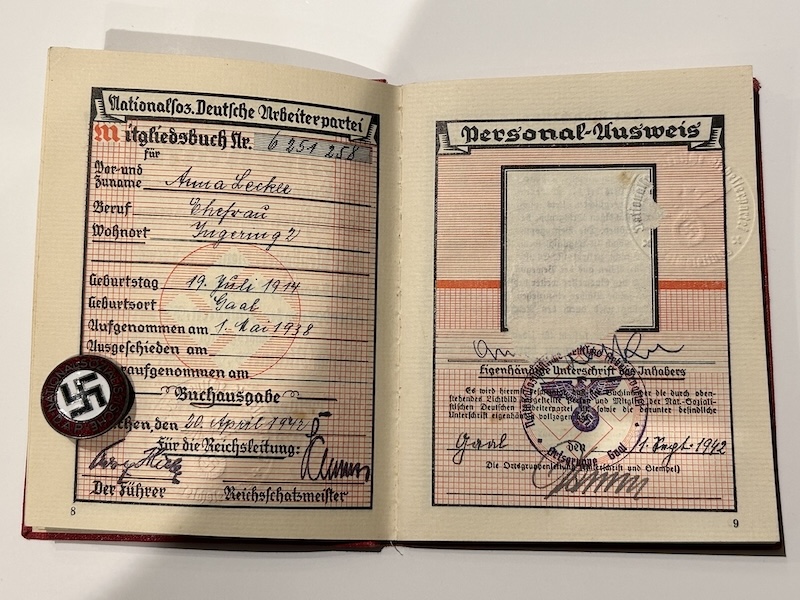 Nationalsoz. Deutsche Arbeiterpartei
Mitgliedsbuch Nr. 6 251 258
für
Vor- und
Zuname Anna Lecker
Beruf Ehefrau
Wohnort Ingering 2
Geburtstag 19. Juli 1914
Geburtsort Gaal
Aufgenommen am 1. Mai 1938
Ausgeschieden am
aufgenommen am
Buchausgabe
den 20. April 1942
Für die Reichsleitung:
Der Führer Reichsschatzmeister
8
Personal-Ausweis
Eigenhändige Unterschrift des Inhabers
Es wird hiermit der Buchinhaber die durch oben-
stehendes Lichtbild Person und Mitglied der Nat.-Soziali-
stischen Deutschen Arbeiterpartei ist, sowie die darunter befindliche
Unterschrift eigenhändig vollzogen
Gaal den 1. Sept. 1942
Ortsgruppe Gaal
Die Ortsgruppenleitung (Unterschrift und Stempel)
9